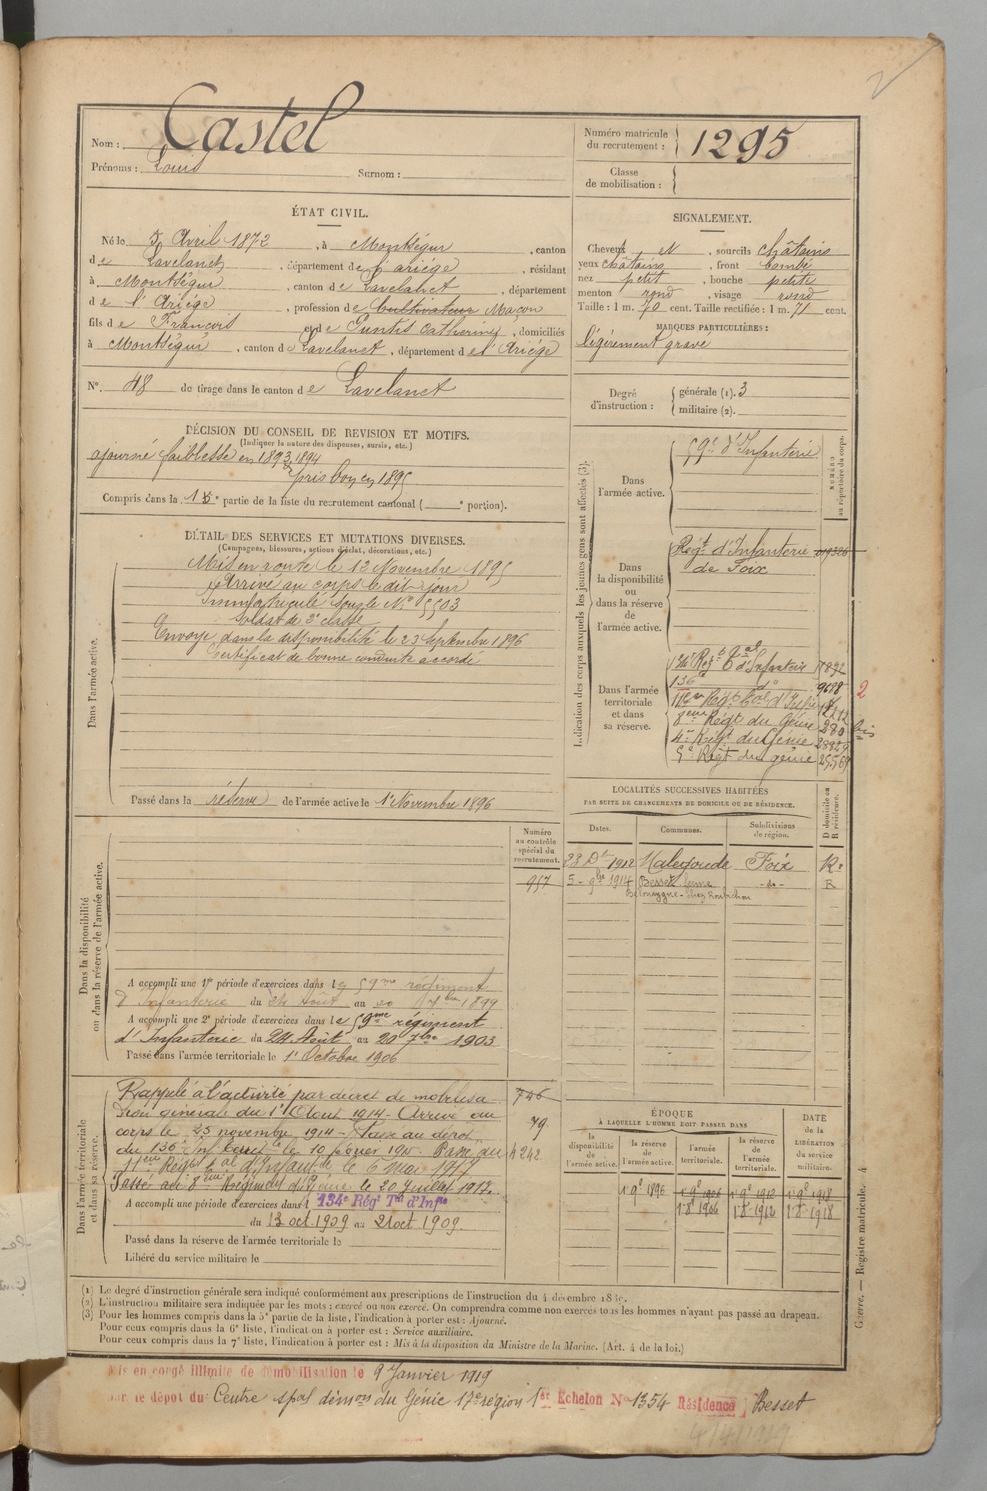 Nom : Castel
Prénoms : Louis Surnom :
Numéro matricule
du recrutement : 1295
Classe
de mobilisation :
ÉTAT CIVIL.
Né le 5 Avril 1872, à Montségur, canton
de Lavelanet, département de l'ariége, résidant
à Montségur, canton de Lavelanet, département
de l'Ariége, profession de Cultivateur Maçon
fils de François et de Puntis Catherine, domiciliés
à Montségur, canton de Lavelanet, département de l'Ariége
N°. 48 de tirage dans le canton de Lavelanet
SIGNALEMENT.
Cheveux et, sourcils châtains
yeux châtains, front bombé
nez petit, bouche petite
menton rond, visage rond
Taille : 1 m. 70 cent. Taille rectifiée : 1 m. 71 cent.
MARQUES PARTICULIÈRES :
légèrement gravé
Degré
d'instruction :
générale (1). 3
militaire (2).
DÉCISION DU CONSEIL DE REVISION ET MOTIFS.
(Indiquer la nature des dispenses, sursis, etc.)
ajourné faiblesse en 1893, 1894
pris bon en 1895
Compris dans la 1e partie de la liste du recrutement cantonal ( e portion).
DÉTAIL DES SERVICES ET MUTATIONS DIVERSES.
(Campagnes, blessures, actions d'éclat, décorations, etc.)
Dans l'armée active.
Mis en route le 12 Novembre 1895
Arrivé au corps le dit jour
Immatriculé sous le N° 5503
soldat de 2e classe
Envoyé dans la disponibilité le 23 Septembre 1896
Certificat de bonne conduite accordé
Passé dans la réserve de l'armée active le 1er Novembre 1896
Indication des corps auxquels les jeunes gens sont affectés (3).
NUMÉRO
au répertoire du corps.
Dans
l'armée active.
59e d'Infanterie
Dans
la disponibilité
ou
dans la réserve
de
l'armée active.
Régt d'Infanterie
de Foix
Dans l'armée
territoriale
et dans
sa réserve.
134e Régt Tal d'Infanterie
136e do 9698
11me Régt Tal d'Infie
8eme Régt du Génie 280 bis
4e Régt du Génie 28829
5e Régt du génie 25569
2
LOCALITÉS SUCCESSIVES HABITÉES
PAR SUITE DE CHANGEMENTS DE DOMICILE OU DE RÉSIDENCE.
Dates. Communes. Subdivisions
de région. D domicile ou
R résidence.
23 Dt 1912 Malegoude Foix Re
5 - 9bre 1914 Besset ferme -do- R
Dans la disponibilité
ou dans la réserve de l'armée active.
Numéro
au contrôle
spécial du
recrutement.
957
A accompli une 1re période d'exercices dans le 59me régiment
d'Infanterie du 24 Août au 20 7bre 1899
A accompli une 2e période d'exercices dans le 59me régiment
d'Infanterie du 24 Août au 20 7bre 1903
Passé dans l'armée territoriale le 1er Octobre 1906
Dans l'armée territoriale
et dans sa réserve.
Rappelé à l'activité par décret de mobilisa 746
tion générale du 1er Aout 1914 - Arrivé au 79
corps le 25 novembre 1914 - Passé au dépôt
du 136e Inf le 10 février 191 . Passé au 4242
11eme Régt tal d'Infanterie le 6 mai 1917
Passé au 8eme Régiment du Génie le 20 Juillet 1917.
A accompli une période d'exercices dans l 134e Régt Tal d'Infie
du 13 oct 1909 au 21 oct 1909.
Passé dans la réserve de l'armée territoriale le
Libéré du service militaire le
ÉPOQUE
À LAQUELLE L'HOMME DOIT PASSER DANS
DATE
de la
LIBÉRATION
du service
militaire.
la
disponibilité
de
l'armée active.
la réserve
de
l'armée active.
l'armée
territoriale.
la réserve
de
l'armée
territoriale.
1 9e 1896 1 9e 1906 1 9e 1912 1 9e 1918
1 8 1906 1 8 1912 1 8 1918
(1) Le degré d'instruction générale sera indiqué conformément aux prescriptions de l'instruction du 4 décembre 18
(2) L'instruction militaire sera indiquée par les mots : exercé ou non exercé. On comprendra comme non exercés tous les hommes n'ayant pas passé au drapeau.
(3) Pour les hommes compris dans la 5e partie de la liste, l'indication à porter est : Ajourné.
Pour ceux compris dans la 6e liste, l'indication à porter est : Service auxiliaire.
Pour ceux compris dans la 7e liste, l'indication à porter est : Mis à la disposition du Ministre de la Marine. (Art. 4 de la loi.)
Guerre. — Registre matricule. 4
Mis en congé illimité de démobilisation le 9 Janvier 1919
par le dépôt du Centre spal démon du Génie 17e région 1er Échelon No 1354 Résidence Besset